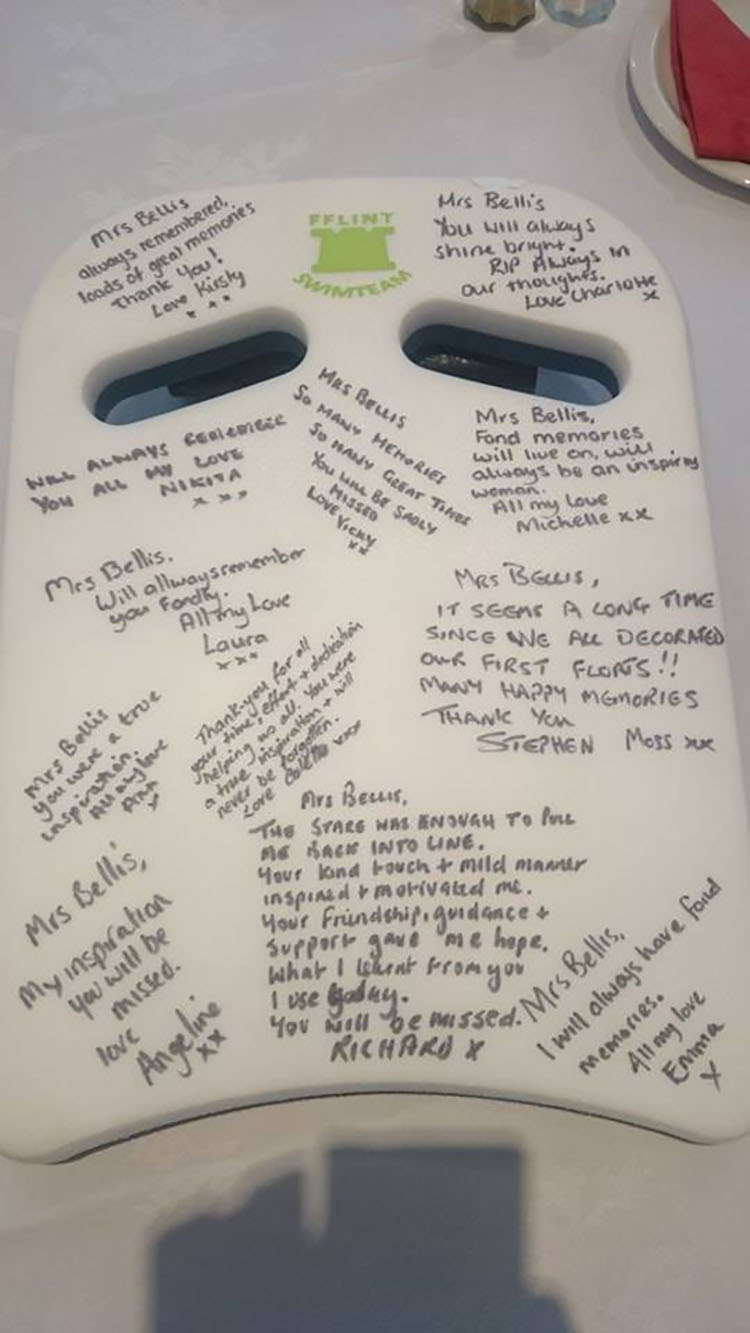 Mrs Bellis
always remembered,
loads of great memories
Thank you!
Love Kirsty
x x x
FFLINT
SWIMTEAM
Mrs Bellis
You will always
shine bright.
RIP Always in
our thoughts.
Love Charlotte
x
WILL ALWAYS REMEMBER
YOU ALL MY LOVE
NIKITA
x x x
MRS BELLIS
SO MANY MEMORIES
SO MANY GREAT TIMES
YOU WILL BE SADLY
MISSED
LOVE VICKY
xx
Mrs Bellis,
Fond memories
will live on, will
always be an inspiring
woman.
All my love
Michelle xx
Mrs Bellis.
Will allways remember
you Fondly.
All my Love
Laura
x x x
Thank-you for all
your time, effort + dedication
helping us all. You were
a true inspiration + will
never be forgotten.
Love Colette xxx
MRS BELLIS,
IT SEEMS A LONG TIME
SINCE WE ALL DECORATED
OUR FIRST FLOATS!!
MANY HAPPY MEMORIES
THANK YOU
STEPHEN MOSS xx
Mrs Bellis
you were a true
inspiration.
All my love
Ann
x
Mrs Bellis,
THE STARE WAS ENOUGH TO PULL
ME BACK INTO LINE.
Your kind touch + mild manner
inspired + motivated me.
Your Friendship, guidance +
support gave me hope.
What I learnt from you
I use today.
You will be missed.
RICHARD x
Mrs Bellis,
My inspiration
you will be
missed.
love
Angeline
xx
Mrs Bellis,
I will always have fond
memories.
All my love
Emma
x